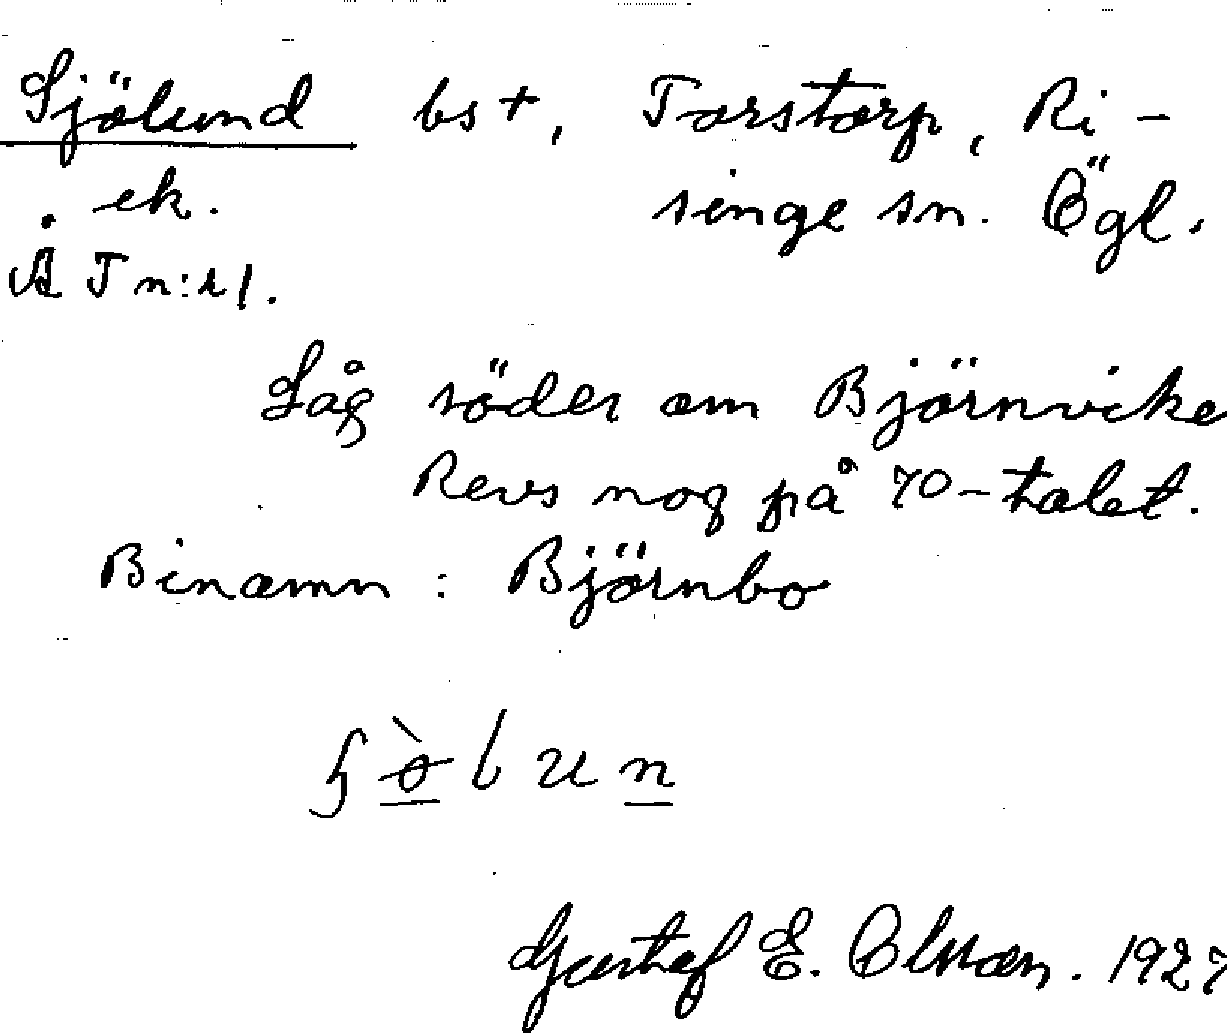 Sjölund bst, Torstorp, Ri-
ek. singe sn. Ögl.
Å T n:r 1.
Låg söder om Björnvike
Revs nog på 70-talet.
Binamn: Björnbo
Gustaf E. Olsson. 1927